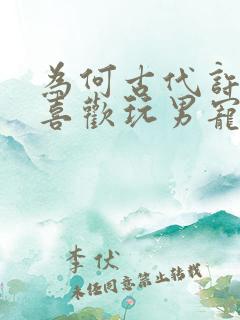 為何古代許
喜歡玩男寵
李伏
未經同意禁止轉載